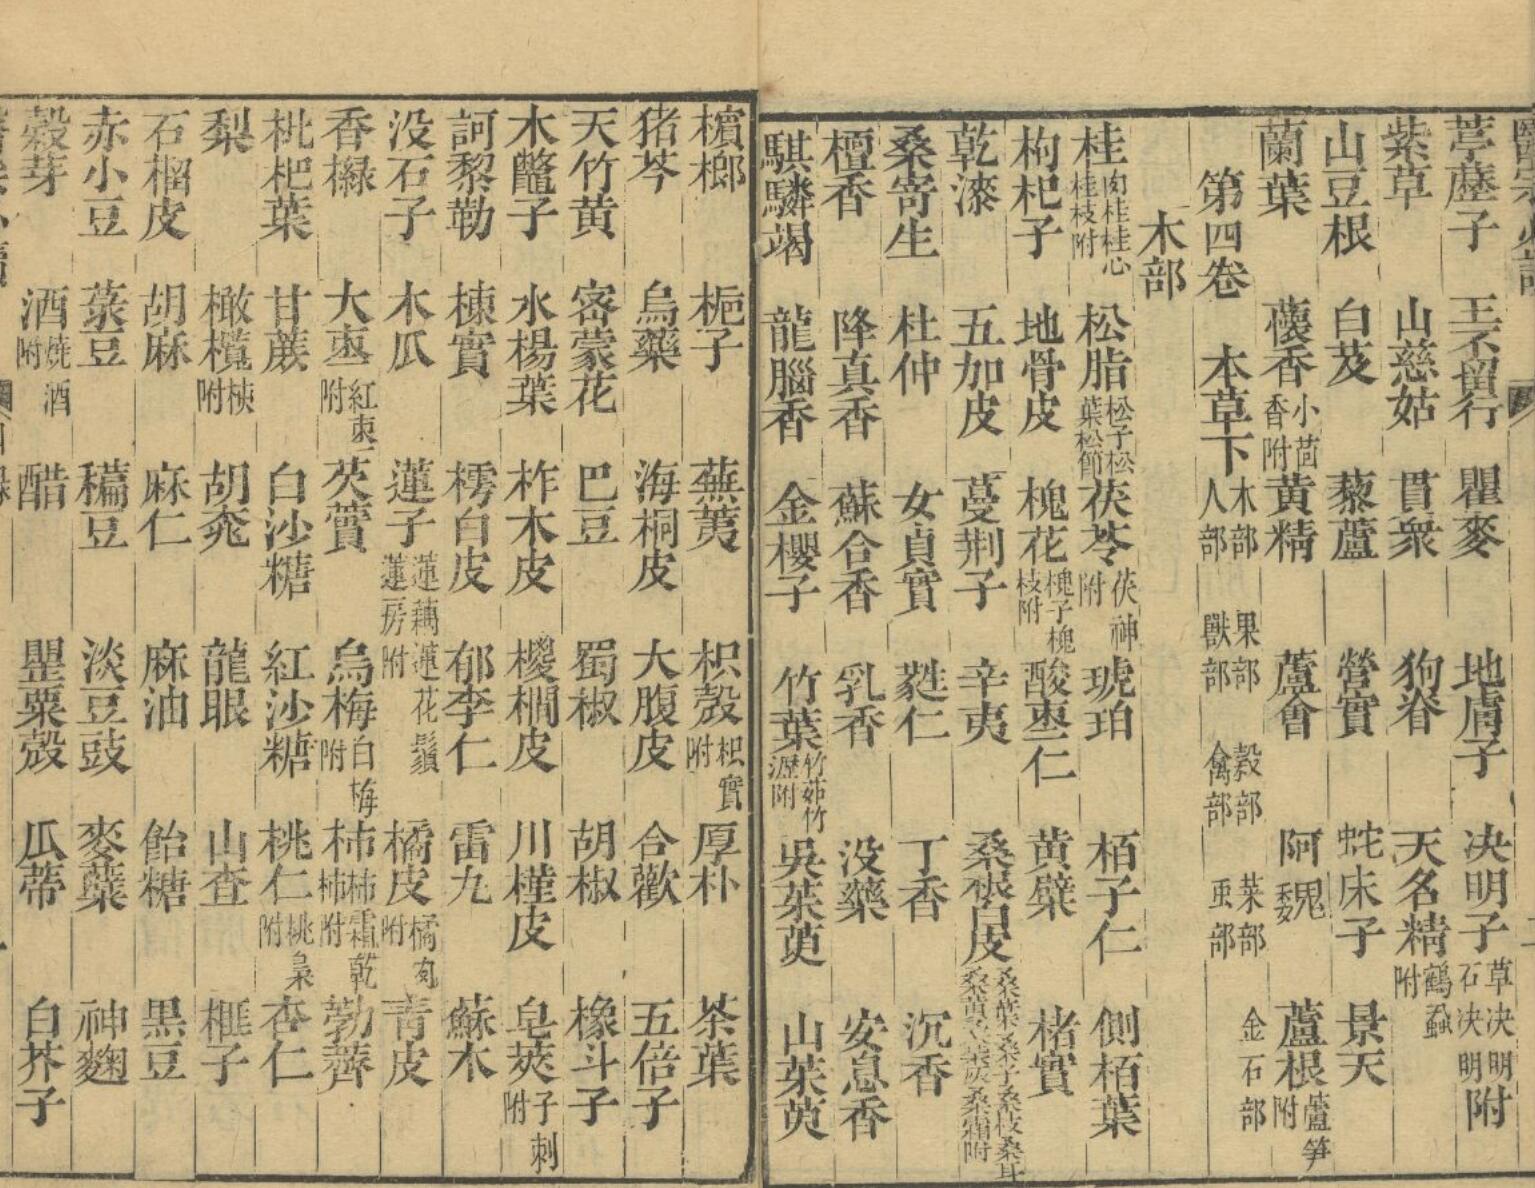 葶藶子 王不留行 瞿麥 地膚子 决明子草决明石决明附
紫草 山慈姑 貫衆 狗脊 天名精鶴蝨附
山豆根 白芨 藜蘆 營實 蛇床子 景天
蘭葉 蘹香小茴香附 黄精 蘆薈 阿魏 蘆根蘆笋附
第四卷 本草下木部 果部 穀部 菜部 金石部 人部 獸部 禽部 虫部
木部
桂肉桂桂心桂枝附 松脂松子松葉松節 茯苓茯神附 琥珀 栢子仁 側栢葉
枸杞子 地骨皮 槐花槐子槐枝附 酸棗仁 黄檗 楮實
乾漆 五加皮 蔓荆子 辛夷 桑根白皮
桑寄生 杜仲 女貞實 蕤仁 丁香 沉香
檀香 降真香 蘇合香 乳香 没藥 安息香
騏驎竭 龍腦香 金櫻子 竹葉竹茹竹瀝附 吳茱萸 山茱萸
檳榔 梔子 蕪荑 枳殼枳實附 厚朴 茶葉
猪苓 烏藥 海桐皮 大腹皮 合歡 五倍子
天竹黄 密蒙花 巴豆 蜀椒 胡椒 橡斗子
木鼈子 水楊葉 柞木皮 椶櫚皮 川槿皮 皂莢子刺附
訶黎勒 楝實 樗白皮 郁李仁 雷丸 蘇木
没石子 木瓜 蓮子蓮藕蓮花鬚蓮房附 橘皮 青皮
香櫞 大棗紅棗附 芡實 烏梅白梅附 柿柿霜乾柿附 荸薺
枇杷葉 甘蔗 白沙糖 紅沙糖 桃仁桃梟附 杏仁
梨 橄欖 胡桃 龍眼 山查 榧子
石榴皮 胡麻 麻仁 麻油 飴糖 黒豆
赤小豆 菉豆 穭豆 淡豆豉 麥蘖 神麴
穀芽 酒燒酒附 醋 罌粟殼 瓜蒂 白芥子